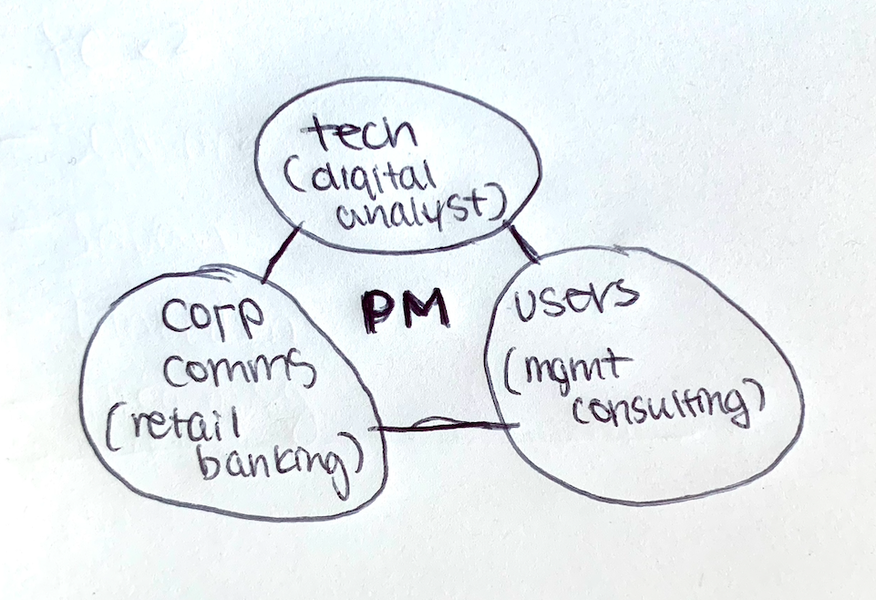 tech
(digital
analyst)
PM
corp
comms
(retail
banking)
users
(mgmt
consulting)